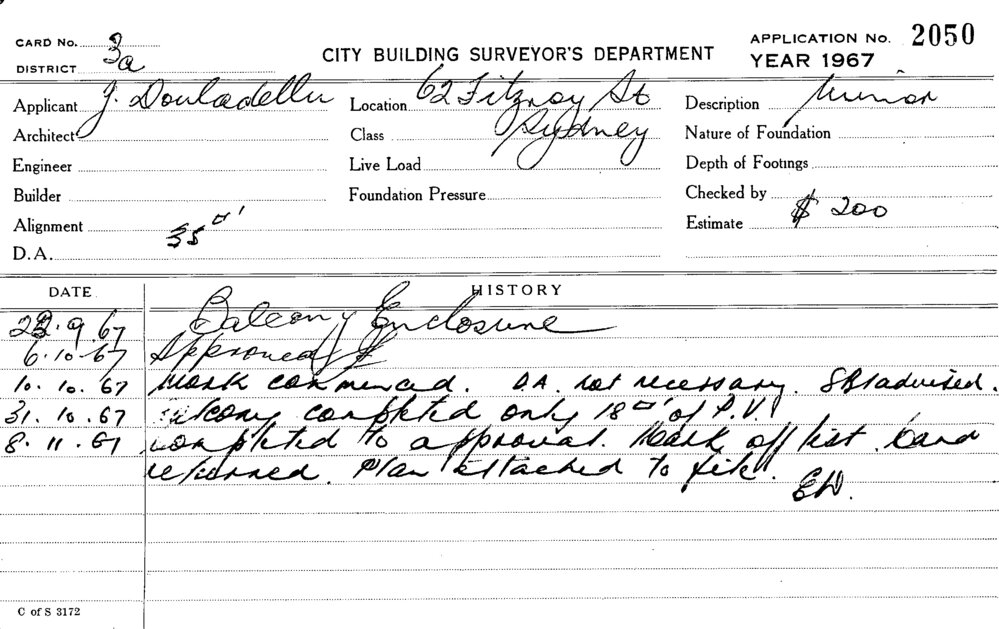 CARD No. 3a
DISTRICT
CITY BUILDING SURVEYOR'S DEPARTMENT
APPLICATION No. 2050
YEAR 1967
Applicant J. Douladellu
Location 62 Fitzroy St
Sydney
Description Minor
Architect
Class
Nature of Foundation
Engineer
Live Load
Depth of Footings
Builder
Foundation Pressure
Checked by
Alignment
Estimate $ 200
D.A. 35 □'
DATE HISTORY
22.9.67 Balcony Enclosure
6.10.67 Approved
10.10.67 Work commenced. D.A. not necessary. SB1 advised.
31.10.67 Balcony completed only 18 □' of P.V.
8.11.67 Completed to approval. Mark off list card
returned. Plan attached to file.
EW.
C of S 3172